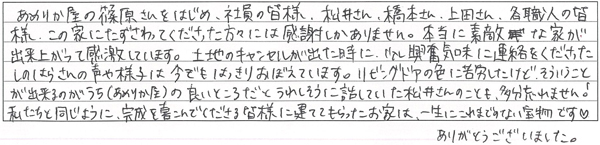 あめりか屋の篠原さんをはじめ、社員の皆様、松井さん、橋本さん、上田さん、各職人の皆
様、この家にたずさわってくださった方々には感謝しかありません。本当に素敵な家が
出来上がって感激しています。土地のキャンセルが出た時に、少し興奮気味に連絡をくださった
しのはらさんの声や様子は今でもはっきりおぼえています。リビングドアの色に苦労したけど、そういうこと
が出来るのがうち(あめりか屋)の良いところだとうれしそうに話していた松井さんのことも、多分忘れません!
私たちと同じように、完成を喜こんでくださる皆様に建ててもらったお家は、一生にこれまでない宝物です♡
ありがとうございました。